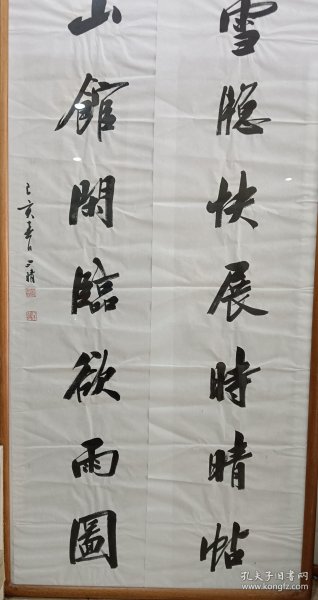 雪牕快展時晴帖
山館閑臨欲雨圖
己亥春日
孔夫子旧书网
www.kongfz.com